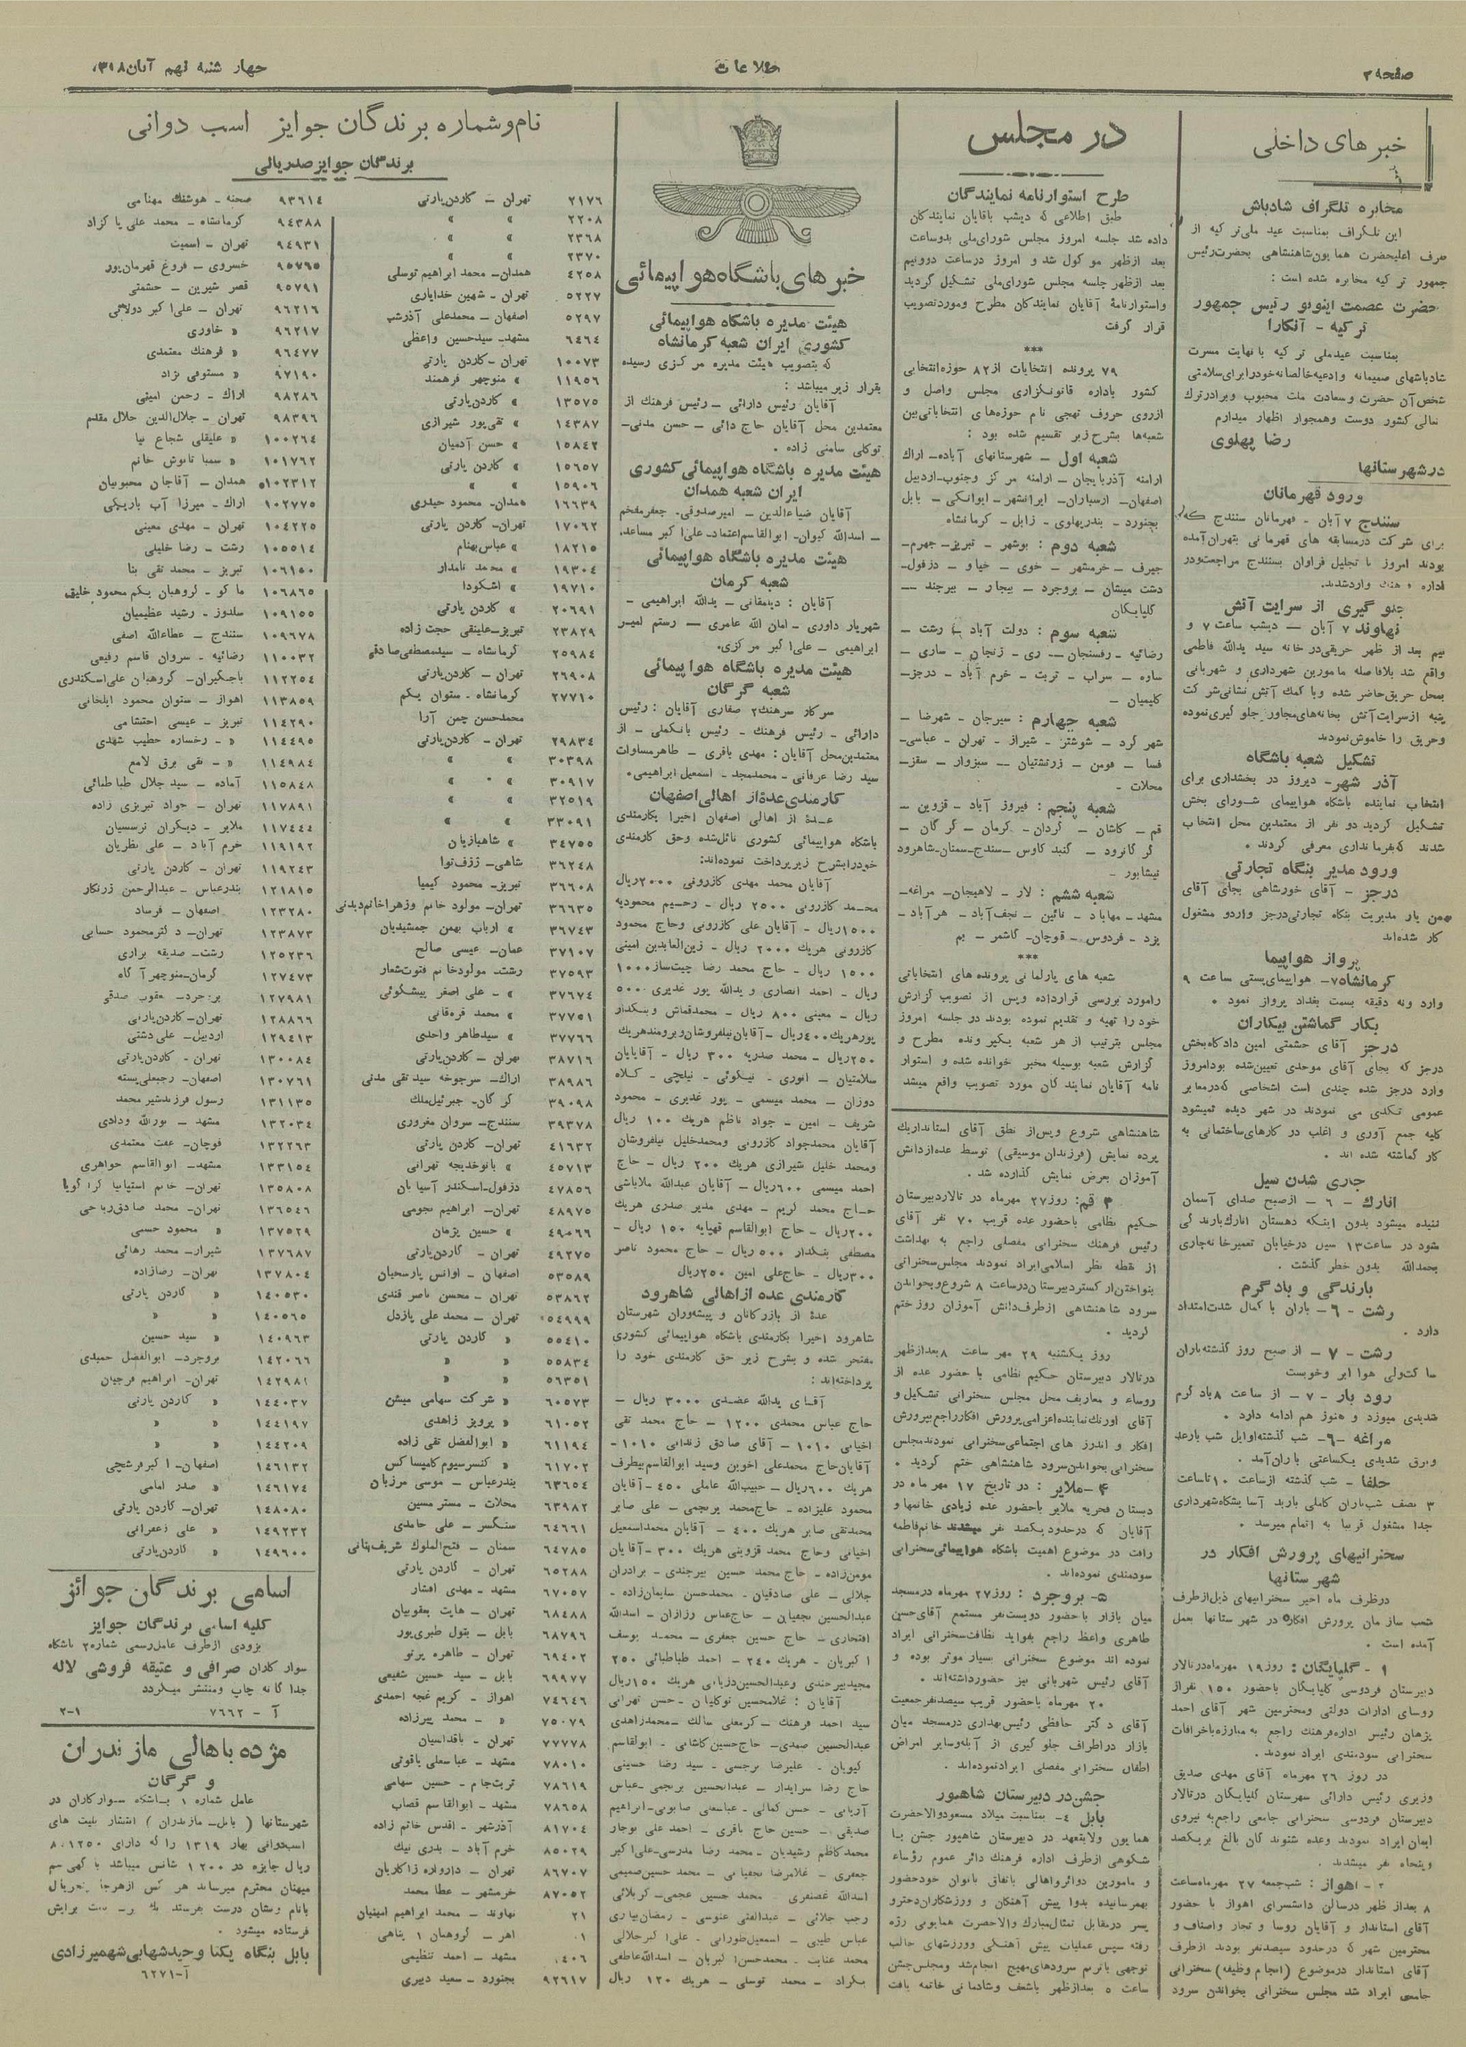 صفحه ۲
اطلاعات
چهار شنبه نهم آبان ۱۳۱۸
خبرهای داخلی
مخابره تلگراف شادباش
این تلگراف بمناسبت عید ملی تر کیه از
طرف اعلیحضرت همایون شاهنشاهی بحضرت رئیس
جمهور تر کیه مخابره شده است :
حضرت عصمت اینونو رئیس جمهور
ترکیه - آنکارا
بمناسبت عید ملی تر کیه با نهایت مسرت
شادباشهای صمیمانه وادعیه خالصانه خودرا برای سلامتی
شخص آن حضرت و سعادت ملت محبوب و برادر ترک
رضا پهلوی
درشهرستانها
ورود قهرمانان
سنندج ۷ آبان - قهرمانان سنندج که
برای شرکت درمسابقه های قهرمانی بتهران آمده
بودند امروز با تجلیل فراوان بسنندج مراجعت ودر
جلو گیری از سرایت آتش
نهاوند ۷ آبان — دیشب ساعت ۷ و
نیم بعد از ظهر حریقی در خانه سید یدالله فاطمی
واقع شد بلافاصله مامورین شهرداری و شهربانی
بمحل حریق حاضر شده و با کمک آتش نشانی شرکت
پنبه از سرایت آتش بخانه های مجاور جلو گیری نموده
وحریق را خاموش نمودند
تشکیل شعبه باشگاه
آذر شهر- دیروز در بخشداری برای
انتخاب نماینده باشگاه هواپیمای شورای بخش
تشکیل گردید دو نفر از معتمدین محل انتخاب
شدند که بفرمانداری معرفی گردند .
ورود مدیر بنگاه تجارتی
درجز - آقای خورشاهی بجای آقای
بهمن یار مدیریت بنگاه تجارتی درجز وارد و مشغول
کار شده اند
پرواز هواپیما
کرمانشاه ۷- هواپیمای پستی ساعت ۹
وارد و نه دقیقه بسمت بغداد پرواز نمود .
بکار گماشتن بیکاران
درجز آقای حشمتی امین دادگاه بخش
درجز که بجای آقای موحدی تعیین شده بود امروز
وارد درجز شده چندی است اشخاصی که در معابر
عمومی تکدی می نمودند در شهر دیده نمیشود
کلیه جمع آوری و اغلب در کارهای ساختمانی به
کار گماشته شده اند .
جاری شدن سیل
انارک - ۶ - از صبح صدای آسمان
شنیده میشود بدون اینکه دهستان انارک بارندگی
شود در ساعت ۱۳ سیل در خیابان تعمیر خانه جاری
بحمدالله بدون خطر گذشت .
بارندگی و باد گرم
رشت - ۶- باران با کمال شدت امتداد
دارد .
رشت - ۷ - از صبح روز گذشته باران
ساکت ولی هوا ابر وخوبست
رود بار - ۷ - از ساعت ۸ باد گرم
شدیدی میوزد و هنوز هم ادامه دارد .
مراغه -۶- شب گذشته اوایل شب با رعد
وبرق شدیدی یکساعتی باران آمد .
جلفا - شب گذشته از ساعت ۱۰ تا ساعت
سخنرانیهای پرورش افکار در
شهرستانها
درظرف ماه اخیر سخنرانیهای ذیل از طرف
شعب سازمان پرورش افکار در شهرستانها بعمل
آمده است .
۱ - گلپایگان : روز ۱۹ مهرماه در تالار
دبیرستان فردوسی گلپایگان باحضور ۱۵۰ نفر از
روسای ادارات دولتی ومحترمین شهر آقای احمد
پژمان رئیس اداره فرهنگ راجع به مبارزه باخرافات
سخنرانی سودمندی ایراد نمودند .
در روز ۲۶ مهرماه آقای مهدی صدیق
وزیری رئیس دارائی شهرستان گلپایگان در تالار
دبیرستان فردوسی سخنرانی جامعی راجع به نیروی
ایمان ایراد نمودند وعده شنوند گان بالغ بریکصد
وپنجاه نفر میشدند .
۲ - اهواز : شب جمعه ۲۷ مهرماه ساعت
۸ بعد از ظهر درسالن دانشسرای اهواز با حضور
آقای استاندار و آقایان روسا و تجار واصناف و
محترمین شهر که درحدود سیصد نفر بودند از طرف
آقای استاندار در موضوع (انجام وظیفه) سخنرانی
جامعی ایراد شد مجلس سخنرانی بخواندن سرود
در مجلس
طرح استوارنامه نمایندگان
طبق اطلاعی که دیشب باقایان نمایندگان
داده شد جلسه امروز مجلس شورای ملی بدو ساعت
بعد از ظهر مو کول شد و امروز در ساعت دو و نیم
بعد ازظهر جلسه مجلس شورای ملی تشکیل گردید
واستوارنامه آقایان نمایندگان مطرح و موردتصویب
قرار گرفت
***
۷۹ پرونده انتخابات از ۸۲ حوزه انتخابی
کشور باداره قانونگزاری مجلس واصل و
ازروی حروف تهجی نام حوزه های انتخاباتی بین
شعبه ها بشرح زیر تقسیم شده بود :
شعبه اول - شهرستانهای آباده - اراک
ارامنه آذربایجان - ارامنه مرکز وجنوب- اردبیل
اصفهان- ارسباران- ایرانشهر- ایوانکی - بابل
بجنورد - بندرپهلوی - زابل - کرمانشاه
شعبه دوم : بوشهر - تبریز- جهرم-
جیرفت - خرمشهر - خوی - خیاو - دزفول-
دشت میشان - بروجرد - بیجار - بیرجند -
گلپایگان
شعبه سوم : دولت آباد - رشت -
رضائیه - رفسنجان - ری - زنجان - ساری -
ساوه - سراب - تربت - خرم آباد - درجز-
کلیمیان -
شعبه چهارم : سیرجان - شهرضا -
شهر کرد - شوشتر - شیراز - تهران - عباسی-
فسا - فومن - زرتشتیان - سبزوار - سقز-
محلات -
شعبه پنجم : فیروز آباد - قزوین -
قم - کاشان - گردان - کرمان - گر گان -
گر گانرود - گنبد کاوس - سنندج- سمنان- شاهرود
نیشابور -
شعبه ششم : لار - لاهیجان- مراغه-
مشهد- مهاباد - نائین - نجف آباد - هرآباد -
یزد - فردوس - قوچان- کاشمر - بم
***
شعبه های پارلمانی پرونده های انتخاباتی
رامورد بررسی قرارداده و پس از تصویب گزارش
خود را تهیه و تقدیم نموده بودند در جلسه امروز
مجلس بترتیب از هر شعبه یک پرونده مطرح و
گزارش شعبه بوسیله مخبر خوانده شده و استوار
نامه آقایان نمایند گان مورد تصویب واقع میشد
شاهنشاهی شروع و پس از نطق آقای استاندار یک
پرده نمایش (فرزندان موسیقی) توسط عده از دانش
آموزان بعرض نمایش گذارده شد .
۳ قم : روز ۲۷ مهرماه در تالار دبیرستان
حکیم نظامی باحضور عده قریب ۷۰ نفر آقای
رئیس فرهنگ سخنرانی مفصلی راجع به بهداشت
از نقطه نظر اسلامی ایراد نمودند مجلس سخنرانی
سرود شاهنشاهی از طرف دانش آموزان روز ختم
گردید .
روز یکشنبه ۲۹ مهر ساعت ۸ بعد از ظهر
درتالار دبیرستان حکیم نظامی با حضور عده از
روساء و معاریف محل مجلس سخنرانی تشکیل و
افکار و اندرز های اجتماعی سخنرانی نمودند مجلس
سخنرانی بخواندن سرود شاهنشاهی ختم گردید .
۴- ملایر : در تاریخ ۱۷ مهر ماه در
دبستان فخریه ملایر باحضور عده زیادی خانمها و
آقایان که درحدود یکصد نفر میشدند خانم فاطمه
رافت در موضوع اهمیت باشگاه هواپیمائی سخنرانی
سودمندی نموده اند .
۵- بروجرد : روز ۲۷ مهرماه در مسجد
میان بازار با حضور دویست نفر مستمع آقای حسن
طاهری واعظ راجع بفواید نظافت سخنرانی ایراد
نموده اند موضوع سخنرانی بسیار موثر بوده و
آقای رئیس شهربانی نیز حضور داشته اند .
۲۰ مهرماه باحضور قریب سیصد نفر جمعیت
آقای دکتر حافظی رئیس بهداری در مسجد میان
بازار در اطراف جلو گیری از آبله وسایر امراض
اطفال سخنرانی مفصلی ایرادنموده اند .
جشن در دبیرستان شاهپور
بابل ٤- بمناسبت میلاد مسعود والاحضرت
همایون ولایتعهد در دبیرستان شاهپور جشن با
شکوهی از طرف اداره فرهنگ دائر عموم رؤساء
و مامورین دوائر واهالی باتفاق بانوان خودحضور
بهم رسانیده بدوا پیش آهنگان و ورزشکاران دختر و
پسر در مقابل تمثال مبارک والاحضرت همایونی رژه
رفته سپس عملیات پیش آهنگی و ورزشهای جالب
توجهی باترنم سرودهای مهیج انجام شد ومجلس جشن
ساعت ۵ بعدازظهر باشعف وشادمانی خاتمه یافت
خبرهای باشگاه هواپیمائی
هیئت مدیره باشگاه هواپیمائی
کشوری ایران شعبه کرمانشاه
که بتصویب هیئت مدیره مرکزی رسیده
بقرار زیر میباشد :
آقایان رئیس دارائی - رئیس فرهنگ از
معتمدین محل آقایان حاج دائی - حسن مدنی-
توکلی ساعتی زاده .
هیئت مدیره باشگاه هواپیمائی کشوری
ایران شعبه همدان
آقایان ضیاءالدین - امیر صدوقی- جعفر مفخم
- اسدالله کیوان- ابوالقاسم اعتماد- علی اکبر مساعد.
هیئت مدیره باشگاه هواپیمائی
شعبه کرمان
آقایان : دیمقانی - یدالله ابراهیمی -
شهریار داوری - امان الله عامری - رستم امیر
ابراهیمی - علی اکبر مرکزی.
هیئت مدیره باشگاه هواپیمائی
شعبه گرگان
سرکار سرهنگ ۲ صفاری آقایان : رئیس
دارائی - رئیس فرهنگ - رئیس بانک ملی - از
معتمدین محل آقایان : مهدی باقری - طاهر مساوات
سید رضا عرفانی - محمدمجد- اسمعیل ابراهیمی.
کارمندی عده از اهالی اصفهان
عده از اهالی اصفهان اخیرا بکارمندی
باشگاه هواپیمائی کشوری نائل شده وحق کارمندی
خودرا بشرح زیر پرداخت نموده اند:
آقایان محمد مهدی کازرونی ۲۰۰۰ ریال
محمد کازرونی ۲۵۰۰ ریال - رحیم محمودیه
۱۵۰۰ ریال - آقایان علی کازرونی وحاج محمود
کازرونی هریک ۲۰۰۰ ریال - زین العابدین امینی
۱۵۰۰ ریال - حاج محمد رضا چیت ساز ۱۰۰۰
ریال - احمد انصاری و یدالله پور غدیری ۵۰۰
ریال - معینی ۸۰۰ ریال - محمدقماش و بنکدار
پور هریک ۴۰۰ ریال - آقایان نیلفروشان و برومند هریک
۲۵۰ ریال - محمد صدریه ۳۰۰ ریال - آقایان
سلامتیان - انوری - نیکوئی - نیلچی - کلاه
دوزان - محمد میسمی - پور غدیری - محمود
شریف - امین - جواد ناظم هریک ۱۰۰ ریال
آقایان محمدجواد کازرونی ومحمدخلیل نیلفروشان
ومحمد خلیل شیرازی هریک ۲۰۰ ریال - حاج
احمد میسمی ۶۰۰ ریال - آقایان عبدالله ملاباشی
حاج محمد کریم - مهدی مدیر صدری هریک
۲۰۰ ریال - حاج ابوالقاسم قهپایه ۱۵۰ ریال -
مصطفی بنکدار ۵۰۰ ریال - حاج محمود ناصر
۳۰۰ ریال - حاج علی امین ۲۵۰ ریال
کارمندی عده از اهالی شاهرود
عدۀ از بازرگانان و پیشه وران شهرستان
شاهرود اخیرا بکارمندی باشگاه هواپیمائی کشوری
مفتخر شده و بشرح زیر حق کارمندی خود را
پرداخته اند :
آقای یدالله عضدی ۳۰۰۰ ریال -
حاج عباس محمدی ۱۲۰۰ - حاج محمد تقی
اخیانی ۱۰۱۰ - آقای صادق زندانی ۱۰۱۰-
آقایان حاج محمدعلی اخوین وسید ابوالقاسم بیطرف
هریک ۶۰۰ ریال - حبیب الله عاملی ۴۵۰ - آقایان
محمود علیزاده - حاج محمد پرنجمی - علی صابر
محمدتقی صابر هریک ۴۰۰ - آقایان محمداسمعیل
اخیانی وحاج محمد قزوینی هریک ۳۰۰ - آقایان
مومن زاده - حاج محمد حسین بیرجندی - برادران
جلالی - علی صادقیان - محمدحسن سلیمان زاده -
عبدالحسین نجفیان - حاج عباس رزازان - اسدالله
افتخاری - حاج حسین جعفری - محمد یوسف
اکبریان - هریک ۲۴۰ - احمد طباطبائی ۲۵۰
مجید بیرجندی وعبدالحسین دزیانی هریک ۱۵۰ ریال
آقایان : غلامحسین توکلیان - حسن تهرانی
سید احمد فرهنگ - کرمعلی سالک - محمدزاهدی
عبدالحسین صمدی- حاج حسین کاشامی - ابوالقاسم
کیویان - علیرضا برجسی - سید رضا حسینی
حاج رضا سرایدار - عبدالحسین برنجمی - عباس
آریانی - حسن کمالی - عباسعلی صابونی - ابراهیم
صدیقی - حسین حاج باقری - احمد علی نوجار
محمدکاظم رشیدیان- محمد رضا مدرسی - علی اکبر
جعفری - غلامرضا نجفیانی - محمد حسین صمیمی
اسدالله غضنفری محمد حسین عجمی- کربلائی
رجب جلائی - عبدالغنی عنوسی - رمضان بیاری
عباس طیبی - اسمعیل طورانی - علی اکبر جلالی
محمد عنایت - محمدحسن اکبریان - اسدالله عاطفی
بنکراد - محمد توسلی - هریک ۱۲۰ ریال
نام وشماره برندگان جوایز اسب دوانی
برندگان جوایز صد ریالی
۲۱۷۶ تهران - گاردن پارتی
۲۲۰۸ » »
۲۳۶۸ » »
۲۳۷۰ » »
۴۲۵۸ همدان- محمد ابراهیم توسلی
۵۲۲۷ تهران - شهین خدایاری
۵۲۹۷ اصفهان - محمدعلی آذرشب
۶۴۶۴ مشهد- سیدحسین واعظی
۱۰۰۷۳ تهران- گاردن پارتی
۱۱۹۵۶ » منوچهر فرهمند
۱۳۵۷۵ » گاردن پارتی
۱۴۳۸۷ » تقی پور شیرازی
۱۵۸۴۲ » حسن آدمیان
۱۵۶۵۷ » گاردن پارتی
۱۵۹۰۶ » »
۱۶۶۳۹ همدان- محمود حیدری
۱۷۰۶۲ تهران- گاردن پارتی
۱۸۲۱۵ » عباس بهنام
۱۹۳۰۴ » محمد نامدار
۱۹۷۱۰ » اشکودا
۲۰۶۹۱ » گاردن پارتی
۲۳۸۲۹ تبریز- علینقی حجت زاده
۲۵۹۸۴ کرمانشاه - سیدمصطفی صادقی
۲۶۹۰۸ تهران - گاردن پارتی
۲۷۷۱۰ کرمانشاه . ستوان یکم
محمدحسن چمن آرا
۲۹۸۳۴ تهران - گاردن پارتی
۳۰۳۹۸ » »
۳۰۹۱۷ » »
۳۲۵۱۹ » »
۳۳۰۹۱ » »
۳۴۷۵۵ » شاهبازیان
۳۶۲۴۸ شاهی- ژزف نوا
۳۶۶۰۸ تبریز- محمود کیمیا
۳۶۶۳۵ تهران- مولود خانم وزهراخانم دبدنی
۳۶۷۴۳ » ارباب بهمن جمشیدیان
۳۷۱۰۷ عمان- عیسی صالح
۳۷۵۹۳ رشت- مولودخانم فتوت شعار
۳۷۶۷۴ » - علی اصغر پیشگوئی
۳۷۷۵۱ » محمد فرقانی
۳۷۷۶۶ » سیدطاهر واحدی
۳۸۷۱۶ تهران - گاردن پارتی
۳۸۹۸۶ اراک- سرجوخه سید تقی مدنی
۳۹۰۹۸ گرگان- جبرئیل ملک
۳۹۳۷۸ سنندج- سروان مغروری
۴۱۶۳۲ تهران- گاردن پارتی
۴۵۷۱۳ » بانو خدیجه تهرانی
۴۷۸۵۶ دزفول- اسکندر آسیابان
۴۸۹۷۵ تهران- ابراهیم نجومی
۴۹۰۶۶ » حسین پژمان
۴۹۲۷۵ تهران - گاردن پارتی
۵۳۵۸۹ اصفهان - اوانس پارسحیان
۵۳۸۶۲ تهران - محسن ناصر قندی
۵۴۹۹۹ تهران - محمد علی پازدل
۵۵۴۱۰ » گاردن پارتی
۵۵۸۳۴ » »
۵۶۳۵۱ » »
۶۰۵۷۳ » شرکت سهامی میشن
۶۱۰۵۲ » پرویز زاهدی
۶۱۱۹۴ » ابوالفضل تقی زاده
۶۱۷۰۲ » کنسرسیوم کامپساکس
۶۳۶۵۴ بندرعباس - موسی مرزبان
۶۳۹۸۲ محلات - مستر مسین
۶۴۶۶۱ سنگسر - علی حامدی
۶۴۷۸۵ سمنان - فتح الملوک شریف پناهی
۶۵۲۸۸ تهران - گاردن پارتی
۶۷۰۵۷ مشهد - مهدی افشار
۶۸۴۸۸ تهران - هایت یعقوبیان
۶۸۷۹۶ بابل - بتول طبری پور
۶۹۴۰۲ تهران - طاهره پرتو
۶۹۹۷۷ بابل - سید حسین شفیعی
۷۴۶۴۶ اهواز - کریم غنچه احمدی
۷۵۰۷۹ » - محمد پیرزاده
۷۷۷۷۸ تهران - باقداسیان
۷۸۰۱۰ مشهد - عباسعلی یاقوتی
۷۸۶۱۹ تربت جام - حسین سهامی
۷۸۶۵۸ مشهد - ابوالقاسم قصاب
۸۱۷۰۴ آذرشهر - اقدس خانم زاده
۸۵۰۲۹ خرم آباد - بدری نیک
۸۶۷۰۷ تهران - داروازه زاکاریان
۸۷۰۵۲ خرمشهر - عطا محمد
۲۱ نهاوند - محمد ابراهیم امینیان
اهر - گروهبان ۱ پناهی
مشهد - احمد تنظیمی
۹۲۶۱۷ بجنورد - سعید دبیری
۹۳۶۱۴ صحنه - هوشنگ مهنامی
۹۴۳۸۸ کرمانشاه - محمد علی پاکزاد
۹۴۹۳۱ تهران - اسمیت
۹۵۷۶۵ خسروی - فروغ قهرمان پور
۹۵۷۹۱ قصر شیرین - حشمتی
۹۶۲۱۶ تهران - علی اکبر دولائی
۹۶۲۱۷ » خاوری
۹۶۴۷۷ » فرهنگ معتمدی
۹۷۱۹۰ » مستوفی نژاد
۹۸۲۸۶ اراک - رحمن امینی
۹۸۳۹۶ تهران - جلال الدین جلال مقدم
۱۰۰۲۶۴ » علیقلی شجاع نیا
۱۰۱۷۶۲ » سمبا تانوش خانم
۱۰۲۳۱۲ همدان - آقاجان محبوبیان
۱۰۲۷۷۵ اراک - میرزا آب باریکی
۱۰۴۲۲۵ تهران - مهدی معینی
۱۰۵۵۱۴ رشت - رضا خلیلی
۱۰۶۱۵۰ تبریز - محمد تقی بنا
۱۰۶۸۶۵ ماکو - گروهبان یکم محمود خلیق
۱۰۹۱۵۵ سلدوز - رشید عظیمیان
۱۰۹۶۷۸ سنندج - عطاءالله اصفی
۱۱۰۰۳۲ رضائیه - سروان قاسم رفیعی
۱۱۲۲۵۴ باجگیران - گروهبان علی اسکندری
۱۱۳۸۵۹ اهواز - ستوان محمود ایلخانی
۱۱۴۲۹۰ تبریز - عیسی احتشامی
۱۱۴۴۹۵ » - رخساره خطیب شهدی
۱۱۴۹۸۴ » - نقی برق لامع
۱۱۵۸۴۸ آماده - سید جلال طباطبائی
۱۱۷۸۹۱ تهران - جواد تبریزی زاده
۱۱۷۴۴۴ ملایر - دیگران نرسسیان
۱۱۹۱۹۲ خرم آباد - علی نظریان
۱۱۹۲۴۳ تهران - گاردن پارتی
۱۲۱۸۱۵ بندرعباس - عبدالرحمن زرنگار
۱۲۳۲۸۰ اصفهان - فرساد
۱۲۳۸۷۳ تهران- دکتر محمود حسابی
۱۲۵۲۳۶ رشت- صدیقه برازی
۱۲۷۴۷۳ کرمان- منوچهر آگاه
۱۲۷۹۸۱ بروجرد- یعقوب صدقی
۱۲۸۸۶۶ تهران- گاردن پارتی
۱۲۹۴۱۳ اردبیل- علی دشتی
۱۳۰۰۸۴ تهران - گاردن پارتی
۱۳۰۷۶۱ اصفهان- رجبعلی بسته
۱۳۱۱۳۵ رسول فرزند شیر محمد
۱۳۲۰۳۴ مشهد - نورالله ودادی
۱۳۲۲۶۳ قوچان- عفت معتمدی
۱۳۳۱۵۴ مشهد- ابوالقاسم جواهری
۱۳۵۸۰۸ تهران- خانم استپانیا کراگویا
۱۳۶۵۴۶ تهران- محمد صادق ریاحی
۱۳۷۵۲۹ » محمود حسی
۱۳۷۶۸۷ شیراز- محمد رهائی
۱۳۷۸۰۴ تهران- رضازاده
۱۴۰۵۳۰ » گاردن پارتی
۱۴۰۵۶۵ » »
۱۴۰۹۶۳ » سید حسین
۱۴۲۰۶۶ بروجرد- ابوالفضل حمیدی
۱۴۲۹۸۱ تهران- ابراهیم فرجیان
۱۴۴۰۳۷ » گاردن پارتی
۱۴۴۱۹۷ » »
۱۴۴۲۰۹ » »
۱۴۶۱۳۲ اصفهان- اکبر فرشچی
۱۴۶۱۷۴ » صدر امامی
۱۴۸۰۸۰ تهران- گاردن پارتی
۱۴۹۲۳۲ » علی زعفرانی
۱۴۹۶۰۰ » گاردن پارتی
اسامی برندگان جوائز
کلیه اسامی برندگان جوایز
بزودی از طرف عامل رسمی شماره ۲ باشگاه
سوار کاران صرافی و عتیقه فروشی لاله
جداگانه چاپ ومنتشر میگردد
آ - ۷۶۶۲ ۲-۱
مژده باهالی مازندران
و گرگان
عامل شماره ۱ باشگاه سوارکاران در
شهرستانها ( بابل- مازندران ) انتشار بلیت های
اسبدوانی بهار ۱۳۱۹ را که دارای ۸۰۱۲۵۰
ریال جایزه در ۱۲۰۰ شانس میباشد با گهی هم
میهنان محترم میرساند هر کس از هرجا پنج ریال
بانام ونشان درست بفرستد یک بلیت برایش
فرستاده میشود .
بابل بنگاه یکتا وحید شهابی شهمیرزادی
آ-۶۲۷۱